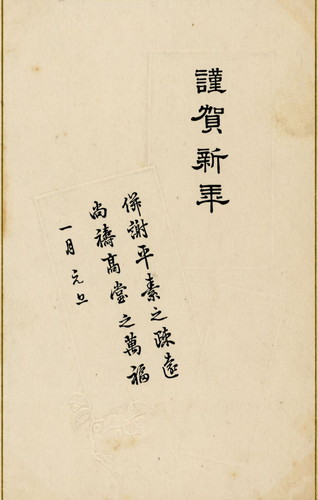 謹賀新年
併謝平素之疎遠
尚禱高堂之萬福
一月元旦